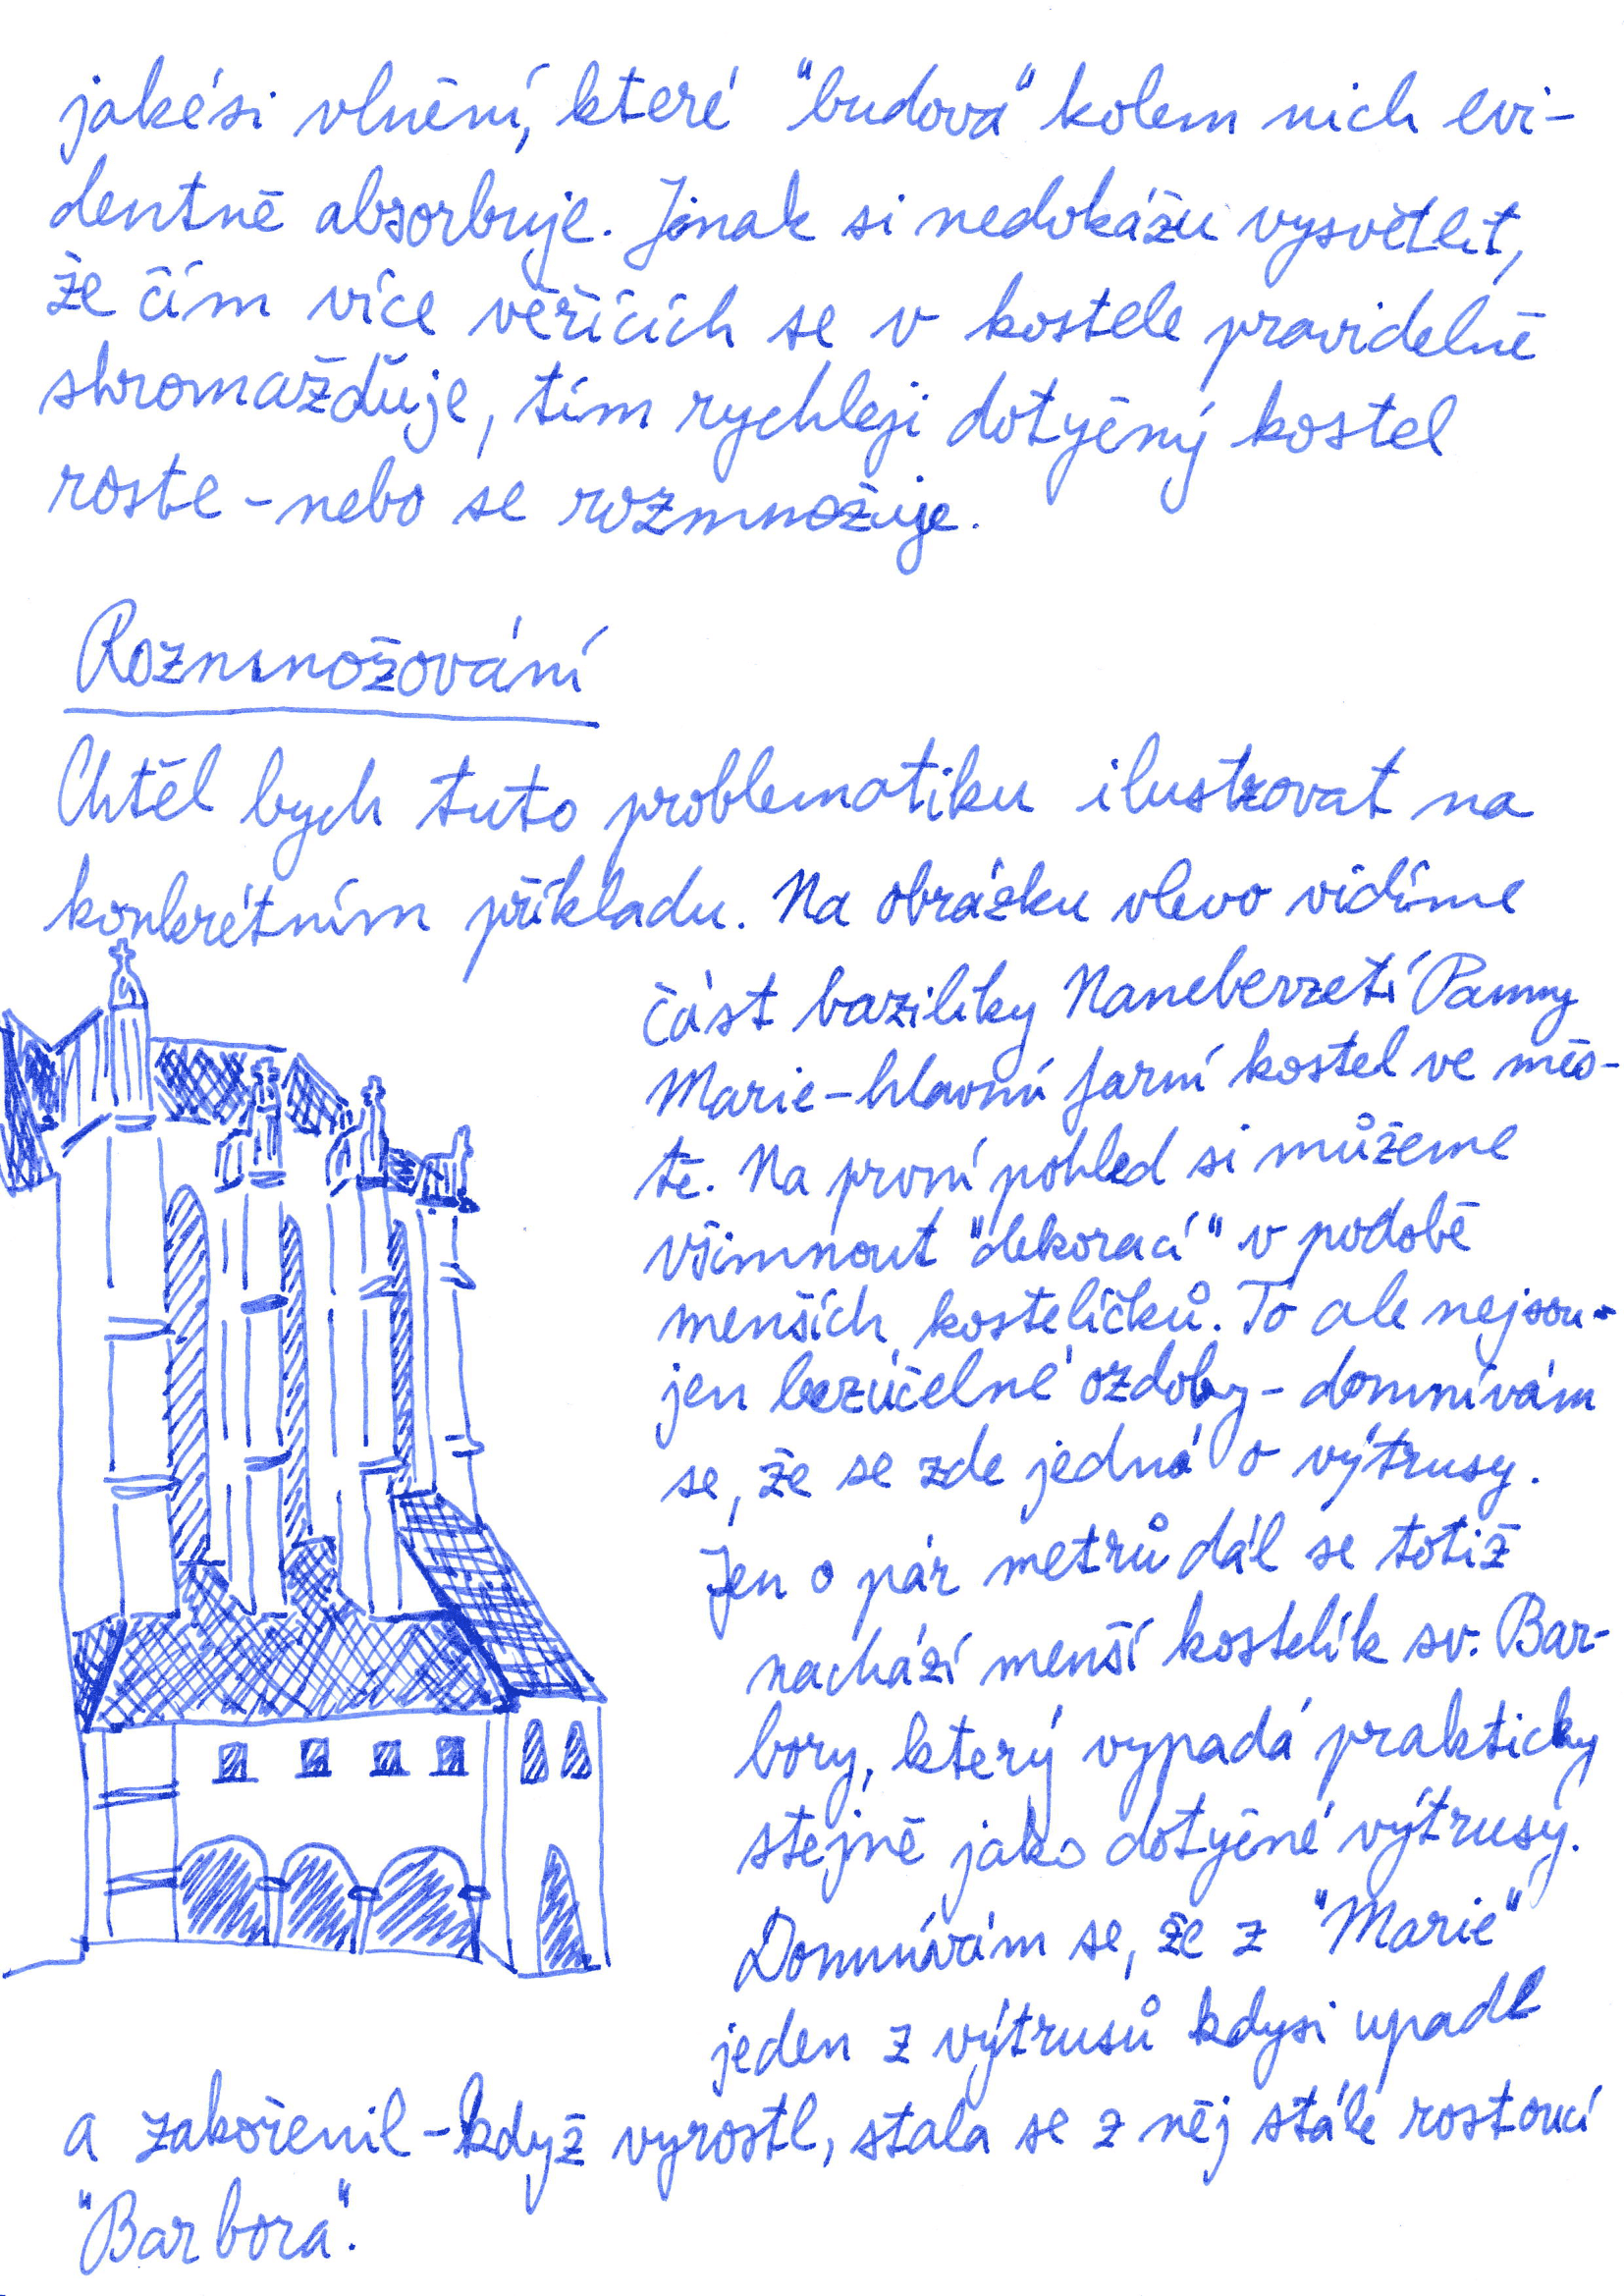 jakési vlnění, které "budova" kolem nich evi-
dentně absorbuje. Jinak si nedokážu vysvětlit,
že čím více věřících se v kostele pravidelně
shromažďuje, tím rychleji dotyčný kostel
roste - nebo se rozmnožuje.
Rozmnožování
Chtěl bych tuto problematiku ilustrovat na
konkrétním příkladu. Na obrázku vlevo vidíme
část baziliky Nanebevzetí Panny
Marie - hlavní farní kostel ve měs-
tě. Na první pohled si můžeme
všimnout "dekorací" v podobě
menších kostelíčků. To ale nejsou
jen bezúčelné ozdoby - domnívám
se, že se zde jedná o výtrusy.
Jen o pár metrů dál se totiž
nachází menší kostelík sv. Bar-
bory, který vypadá prakticky
stejně jako dotyčné výtrusy.
Domnívám se, že z "Marie"
jeden z výtrusů kdysi upadl
a zakořenil - když vyrostl, stala se z něj stále rostoucí
"Barbora".